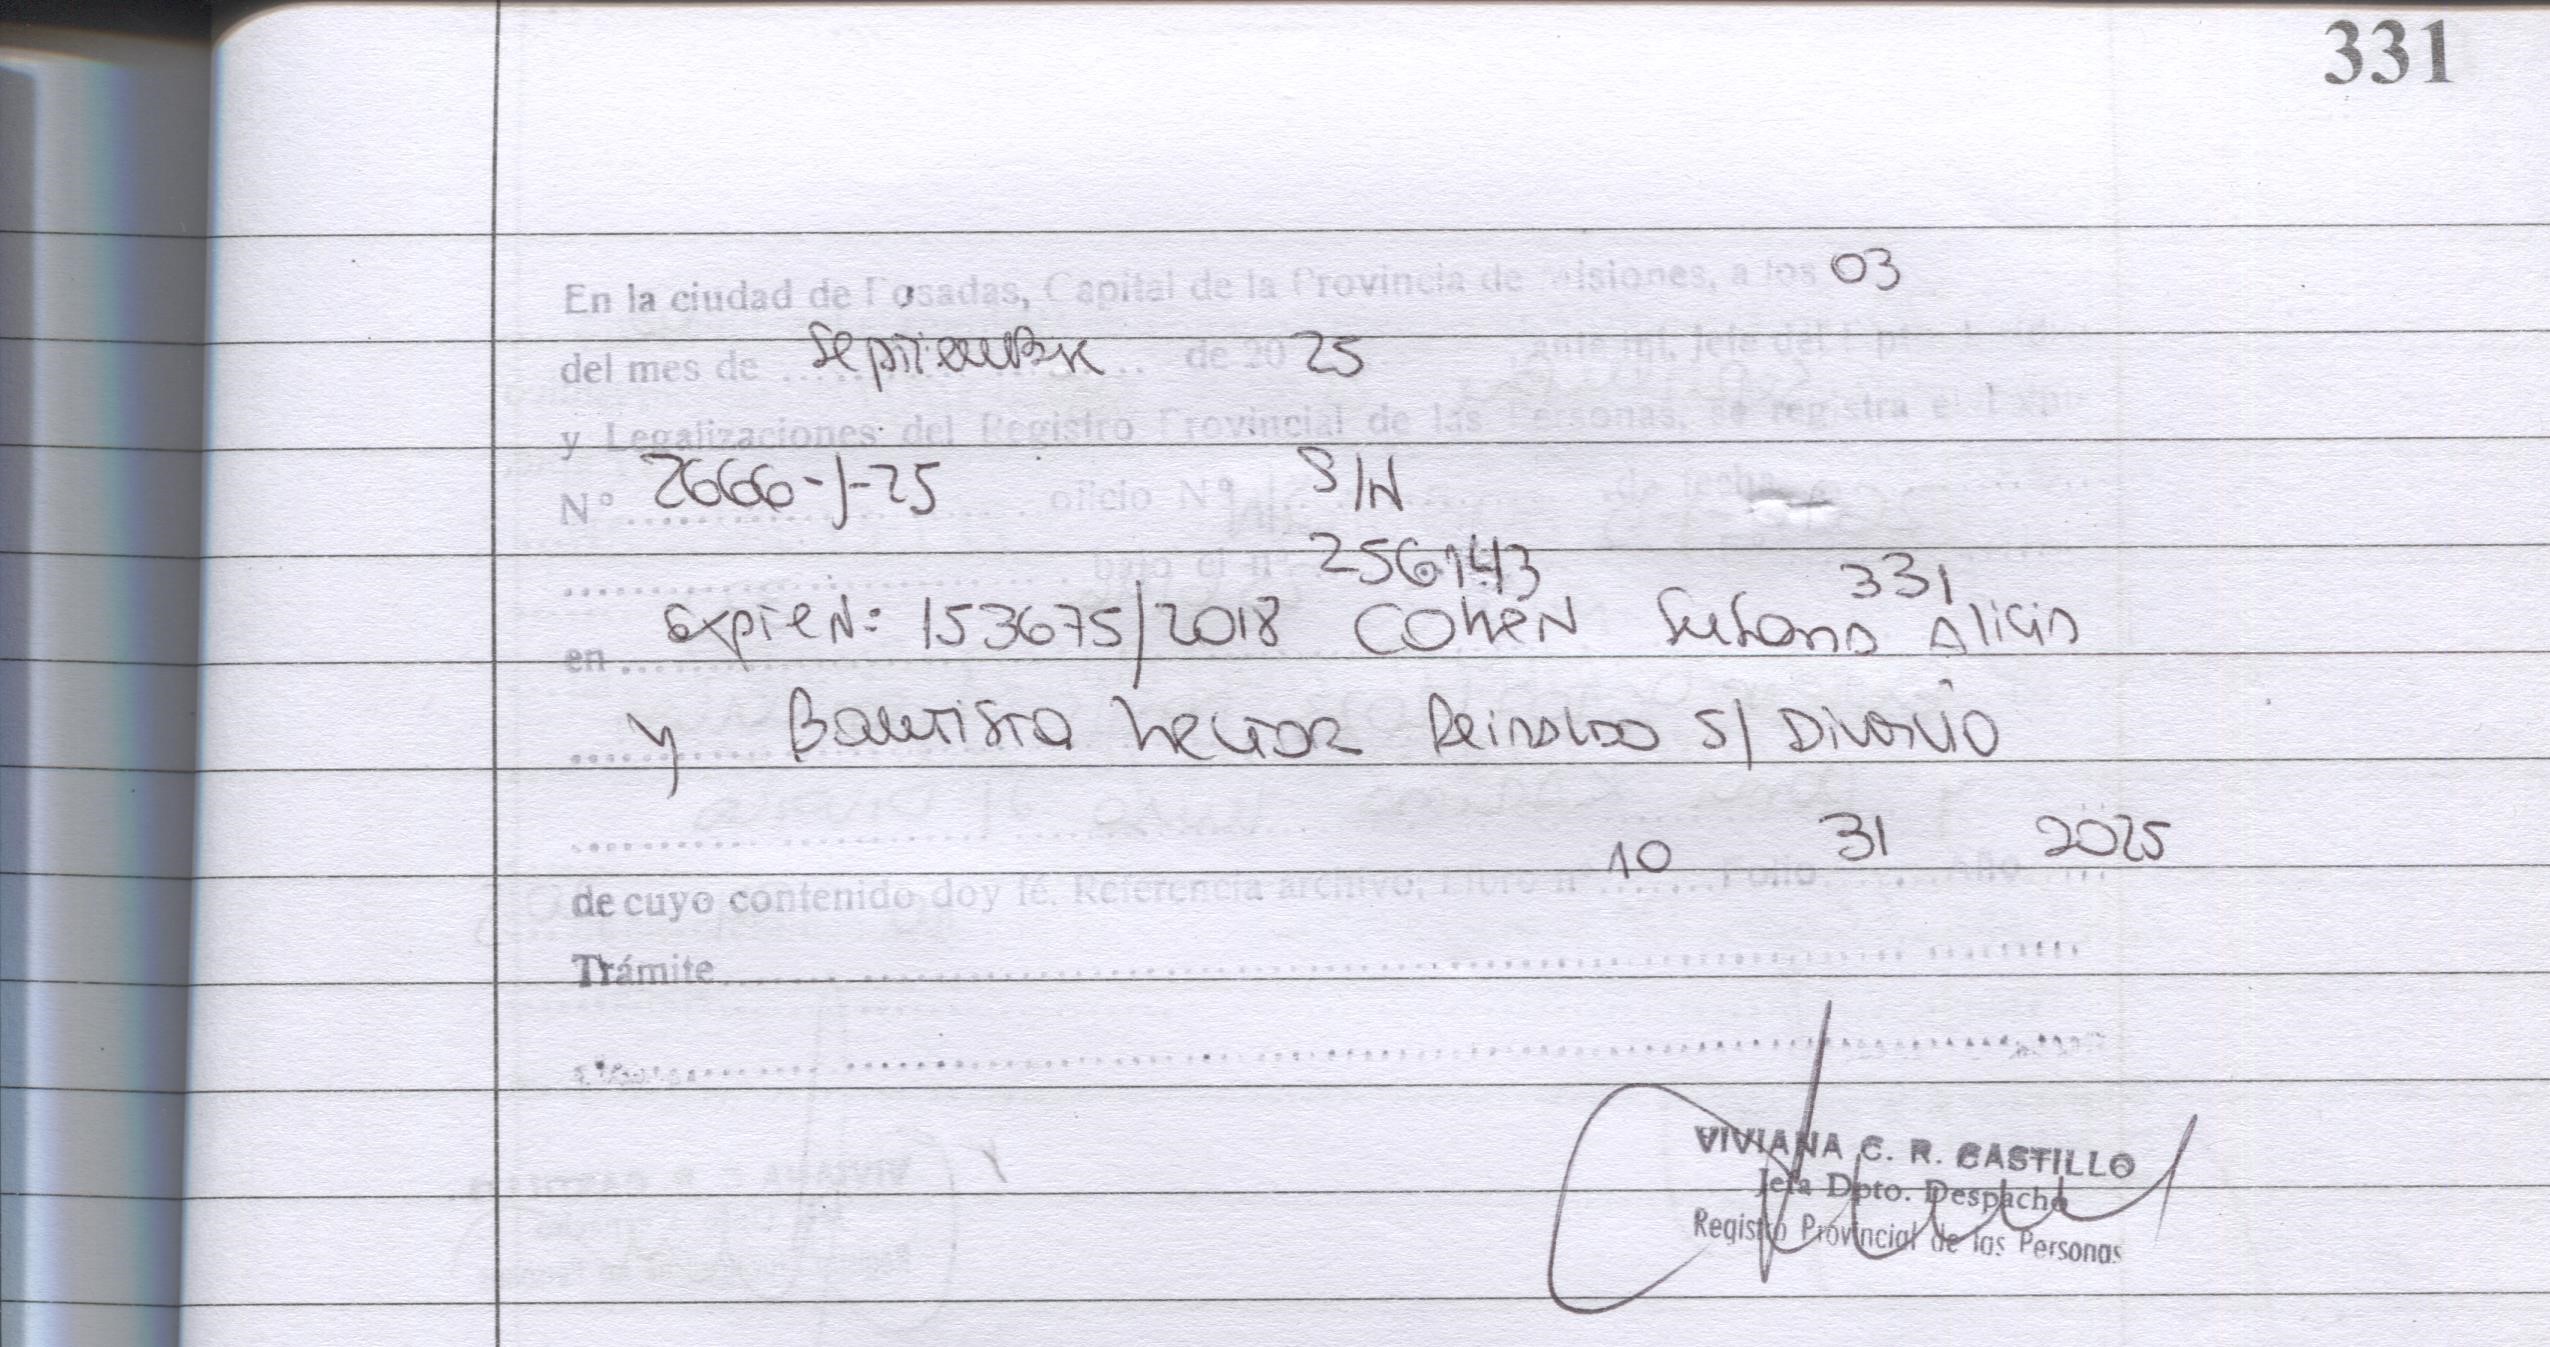 331
En la ciudad de Posadas, Capital de la Provincia de Misiones, a los 03
del mes de Septiembre de 20 25 ante mi, Jefe del Dpto.
y Legalizaciones del Registro Provincial de las Personas, se registra el Expte
N° 2666-J-25 oficio N° S/N de fecha
bajo el n° 256143 331
en Expien: 153675/2018 COHEN Susana Alicia
y Bautista Hector Reinaldo S/ Divorcio
de cuyo contenido doy fé. Referencia archivo, Libro n° 10 Folio 31 Año 2025
Trámite
VIVIANA C. R. CASTILLO
Jefa Dpto. Despacho
Registro Provincial de las Personas